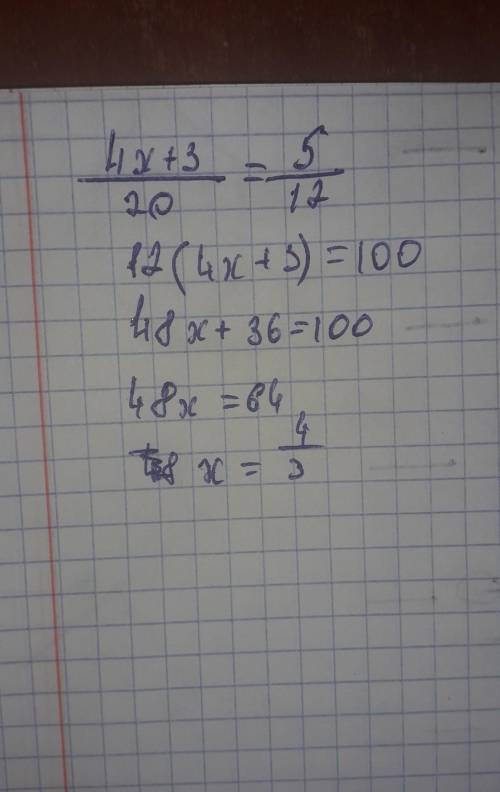 4x+3/20 = 5/12
12(4x+3)=100
48x+36=100
48x=64
x=4/3